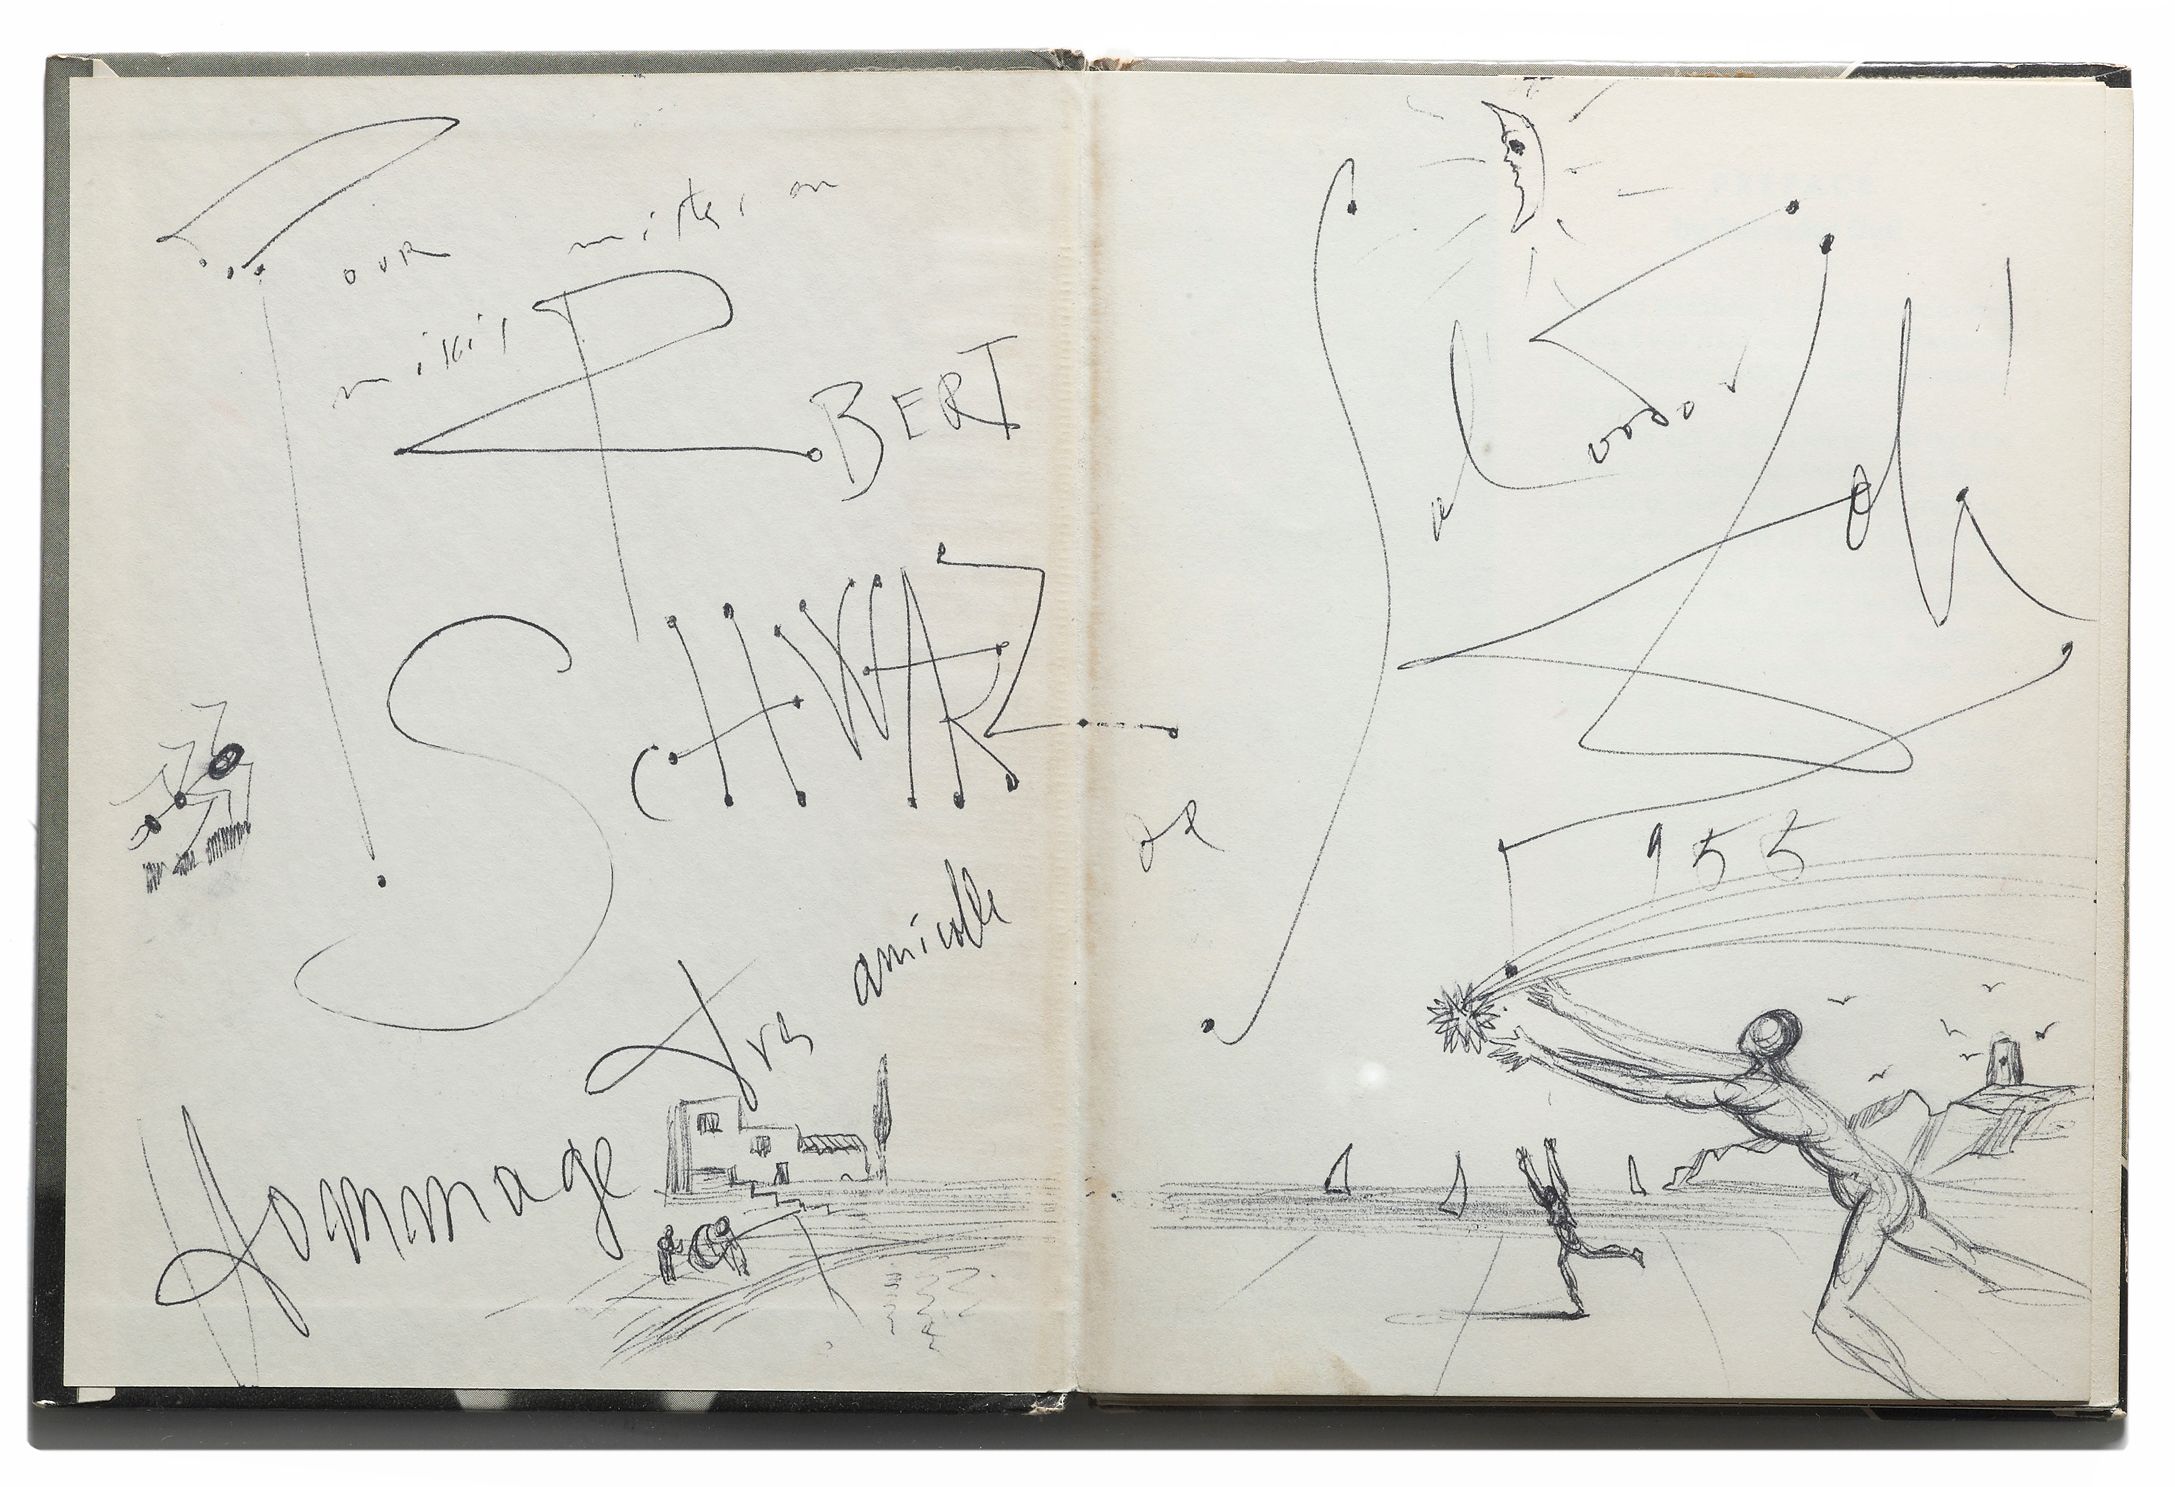 POUR mister an
misis ROBERT
SCHWARZ
Hommage tres amicalle
de
Salvador
Dalí
1955